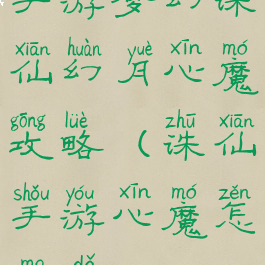 手游梦幻诛
xiān huàn yuè xīn mó
仙幻月心魔
gōng lüè zhū xiān
攻略（诛仙
shǒu yóu xīn mó zěn
手游心魔怎